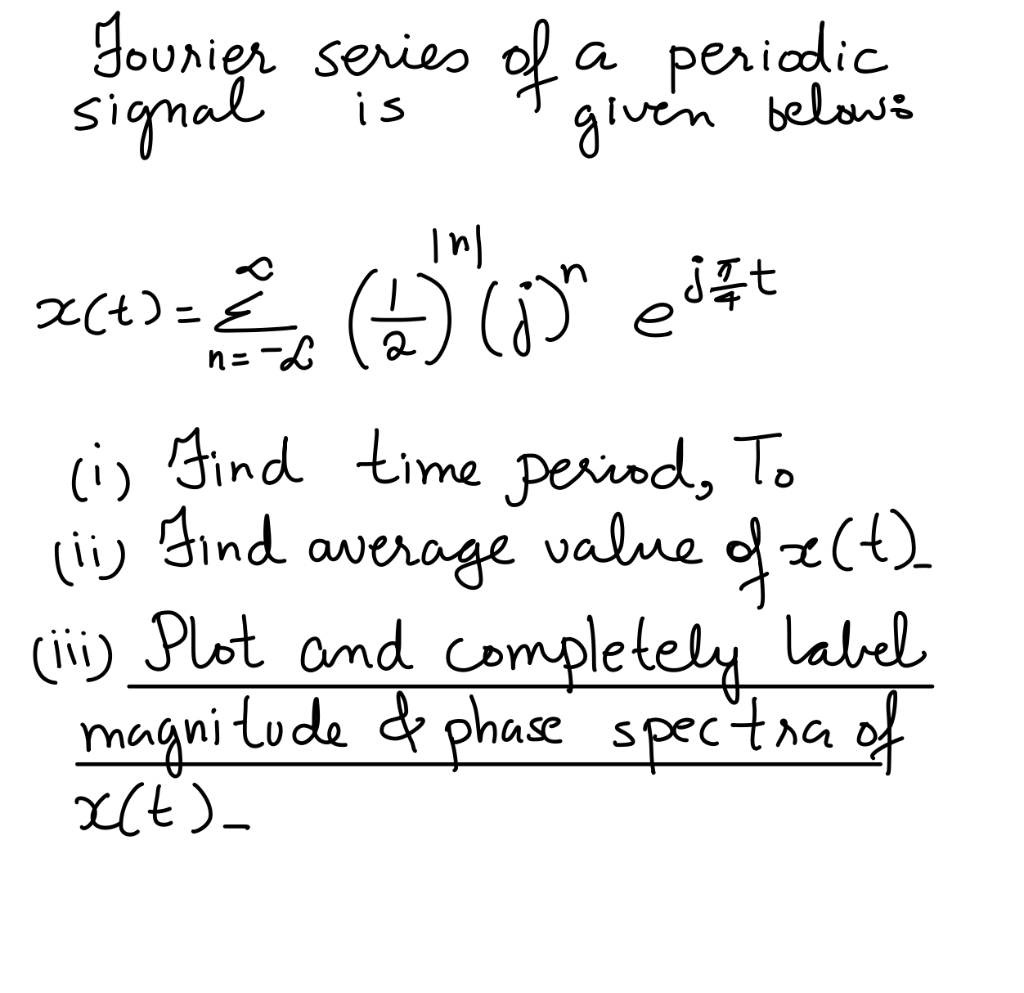 Fourier series of a periodic
signal is given below:
x(t) = ∑_{n=-∞}^{∞} (1/2)^{|n|} (j)^n e^{j π/4 t}
(i) Find time period, To
(ii) Find average value of x(t)_
(iii) Plot and completely label
magnitude & phase spectra of
x(t)_